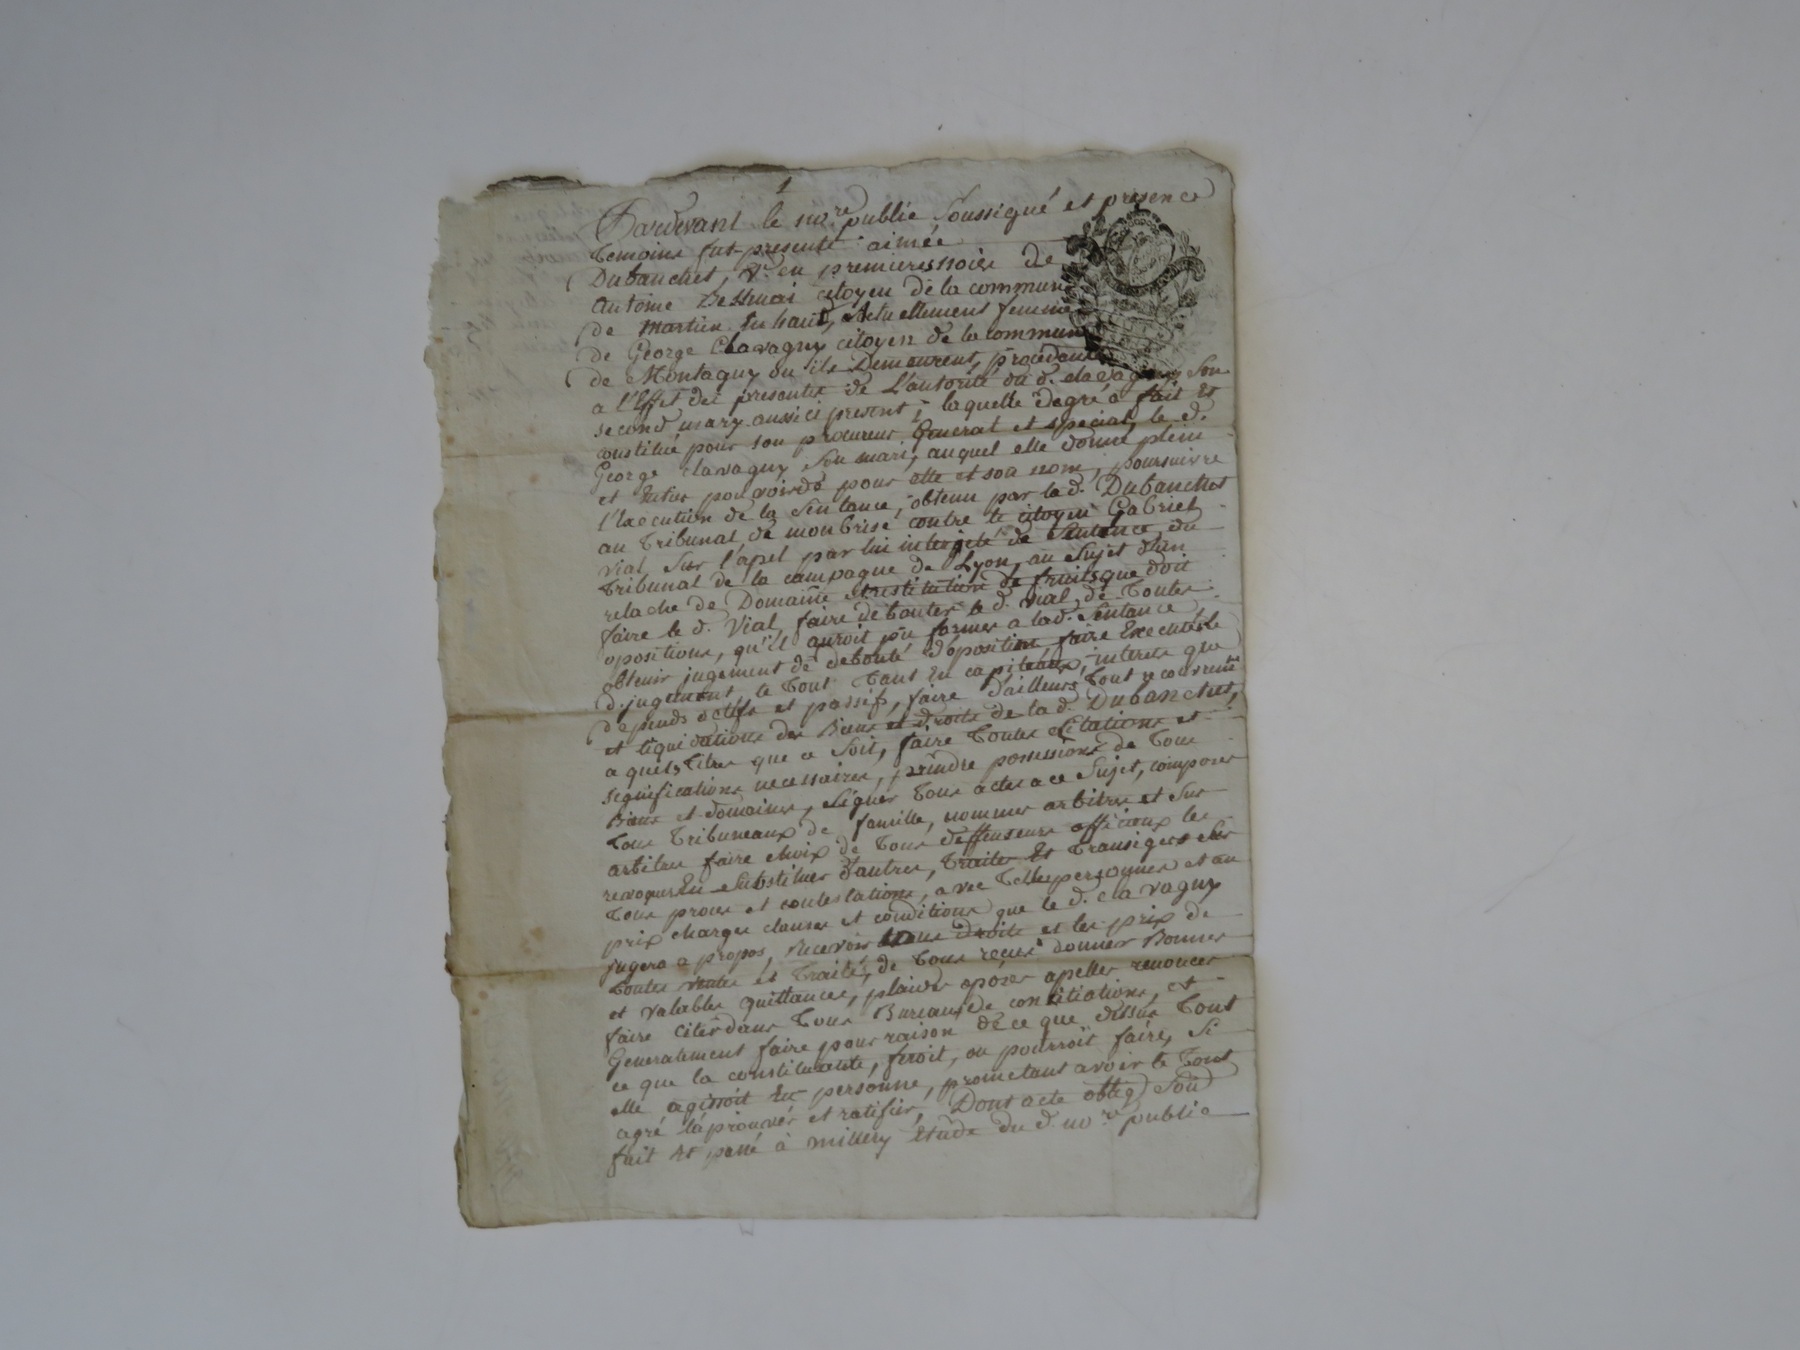 1
Pardevant le no.re public soussigné et presence
temoins fut presente aimée
Dubanchet, v.e en premieres noces de
antoine citoyen de la commune
de martin en haut, actuellement femme
de George Clavagny citoyen de la commune
de Montagny ou ils demeurent, procedante
a l'Effet des presentes de L'autorité du d. clavagny son
second mary aussi ci present; laquelle degré a fait et
constitué pour son procureur General et special, le d.
George clavagny son mari, auquel elle donne plein
et Entier pouvoir de pour elle et son nom, poursuivre
l'Exécution de la sentance, obtenu par lad. Dubanchet
au Tribunal de monbrisé contre le citoyen Gabriel
vial, sur l'apel par lui interjeté de sentence du
Tribunal de la campagne de Lyon, au sujet d'un
relache de Domaine et restitution de fruits que doit
faire le d. Vial, faire debouter le d. vial de Toutes
opositions, qu'il auroit pu former a lad. sentance,
obtenir jugement de debouté d'oposition, faire Executer le
d. jugement, le Tout Tant En capiteaux, interets que
depends actifs et passifs, faire d'ailleurs Tout recouvrem.t
et liquidations des Biens et droits de la d. Dubanchet,
a quels titres que ce soit, faire Toutes Citations et
significations necessaires, prendre possessions de Tous
Biens et domaines, signer Tous actes a ce sujet, composer
Tous Tribuneaux de famille, nommer arbitres et sur
arbitres faire choix de Tous deffenseurs officieux les
revoquer En substituer d'autres, Traiter Et Transiger sur
Tous proces et contestations, avec Telles personnes et au
prix charges clauses et conditions que le d. clavagny
jugera a propos, Recevoir Tous Droits et les prix de
Toutes ventes et Traités, de Tous reçus donner Bonnes
et valables quittances, plaider oposer apeller renoncer
faire citer dans Tous Bureaux De concitiations, et
Generalement faire pour raison de ce que dessus Tout
ce que la constituante, feroit, ou pourroit faire, si
elle agissoit En personne, prometant avoir le Tout
agré l'aprouver et ratifier, Dont acte oblig
fait Et passé à millery Etude du d. no.re public